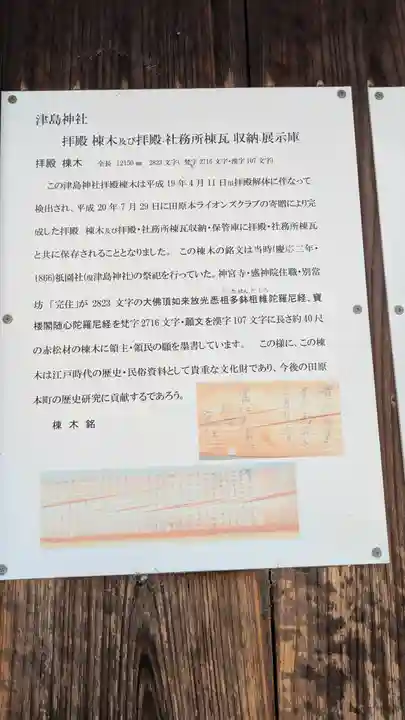 津島神社
拝殿 棟木及び拝殿・社務所棟瓦 収納・展示庫
拝殿 棟木 全長 12150㎜ 2823文字(梵字2716文字・漢字107文字)
この津島神社拝殿棟木は平成19年4月11日拝殿解体に伴なって
検出され、平成20年7月29日に田原本ライオンズクラブの寄贈により完
成した拝殿 棟木及び拝殿・社務所棟瓦収納・保管庫に拝殿・社務所棟瓦
と共に保存されることとなりました。 この棟木の銘文は当時(慶応二年・
1866)祇園社(現津島神社)の祭祀を行っていた。神宮寺・感神院住職・別当
坊「完住」が2823文字の大佛頂如来放光悉怛多鉢怛羅陀羅尼経、寶
楼閣随心陀羅尼経を梵字2716文字・願文を漢字107文字に長さ約40尺
の赤松材の棟木に領主・領民の願を墨書しています。 この様に、この棟
木は江戸時代の歴史・民俗資料として貴重な文化財であり、今後の田原
本町の歴史研究に貢献するであろう。
棟木銘